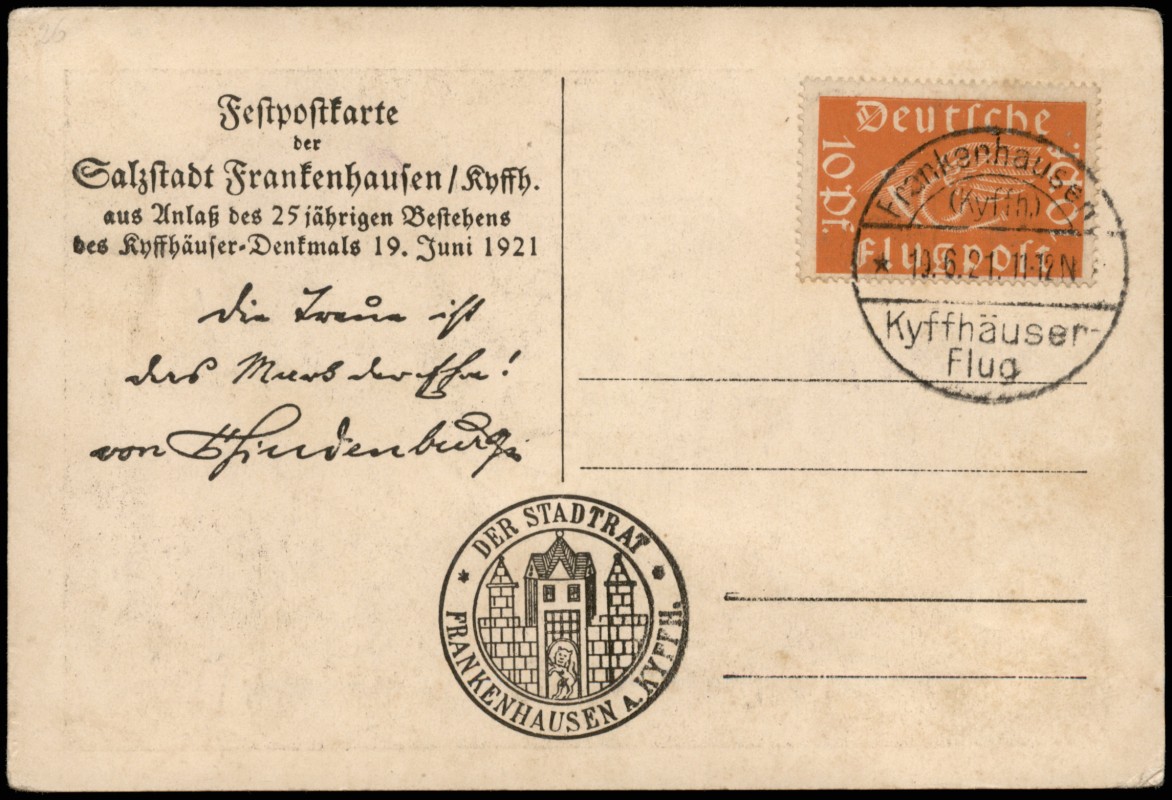 26
Festpostkarte
der
Salzstadt Frankenhausen/Kyffh.
aus Anlaß des 25 jährigen Bestehens
des Kyffhäuser-Denkmals 19. Juni 1921
die Treue ist
das Mark der Ehre!
von Hindenburg
Deutsche
10 Pf.
Flugpost
Frankenhausen
(Kyffh.)
* 19.6.21. 11-12 N
Kyffhäuser-
Flug
* DER STADTRAT *
FRANKENHAUSEN A. KYFFH.